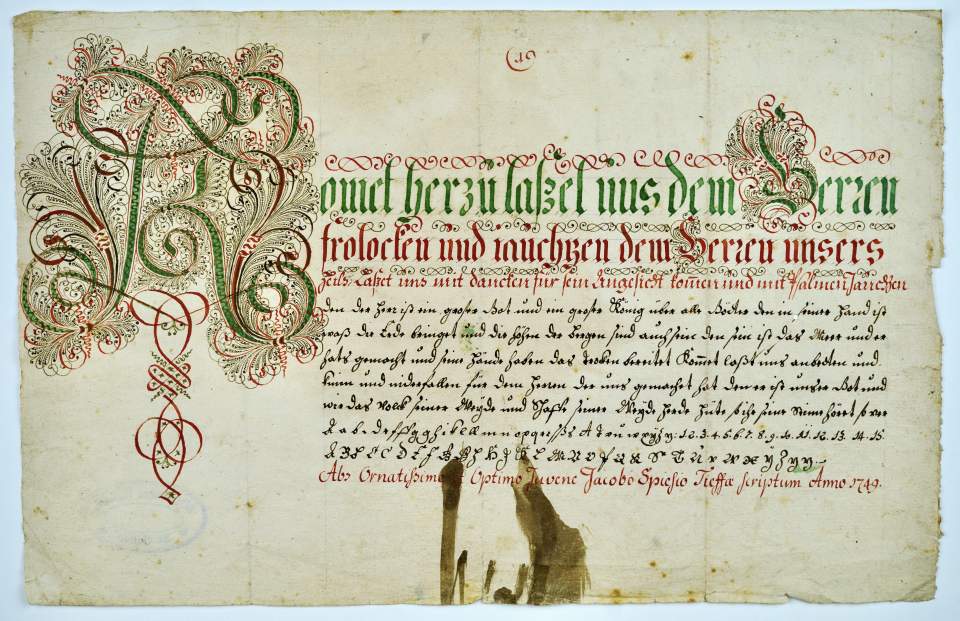 (19
Komet herzu laßet uns dem Herren
frolocken und iauchzen dem Herren unsers
Heils Laßet uns mit dancken für sein Angesicht kom̅en und mit Psalmen Jauchzen
den der Herr ist ein großer Gott und ein großer König über alle Götter den in seiner Hand ist
waß die Erde bringet und die höhen der Bergen sind auch sein den sein ist das Meer und er
hats gemacht und seine Hände haben das Troken bereitet Kom̅et laßt uns anbeten und
knien und niderfallen für dem Herren der uns gemachet hat den er ist unser Gott und
wir das Volck seiner Weyde und Schaffe seiner Weyde herde Hüte so ihr seine Stimme höret so ver
1. 2. 3. 4. 5. 6. 7. 8. 9. 10. 11. 12. 13. 14. 15.
Abs Ornatissimo & Optimo Juvene Jacobo Spiesio Tieffæ scriptum Anno 1749.